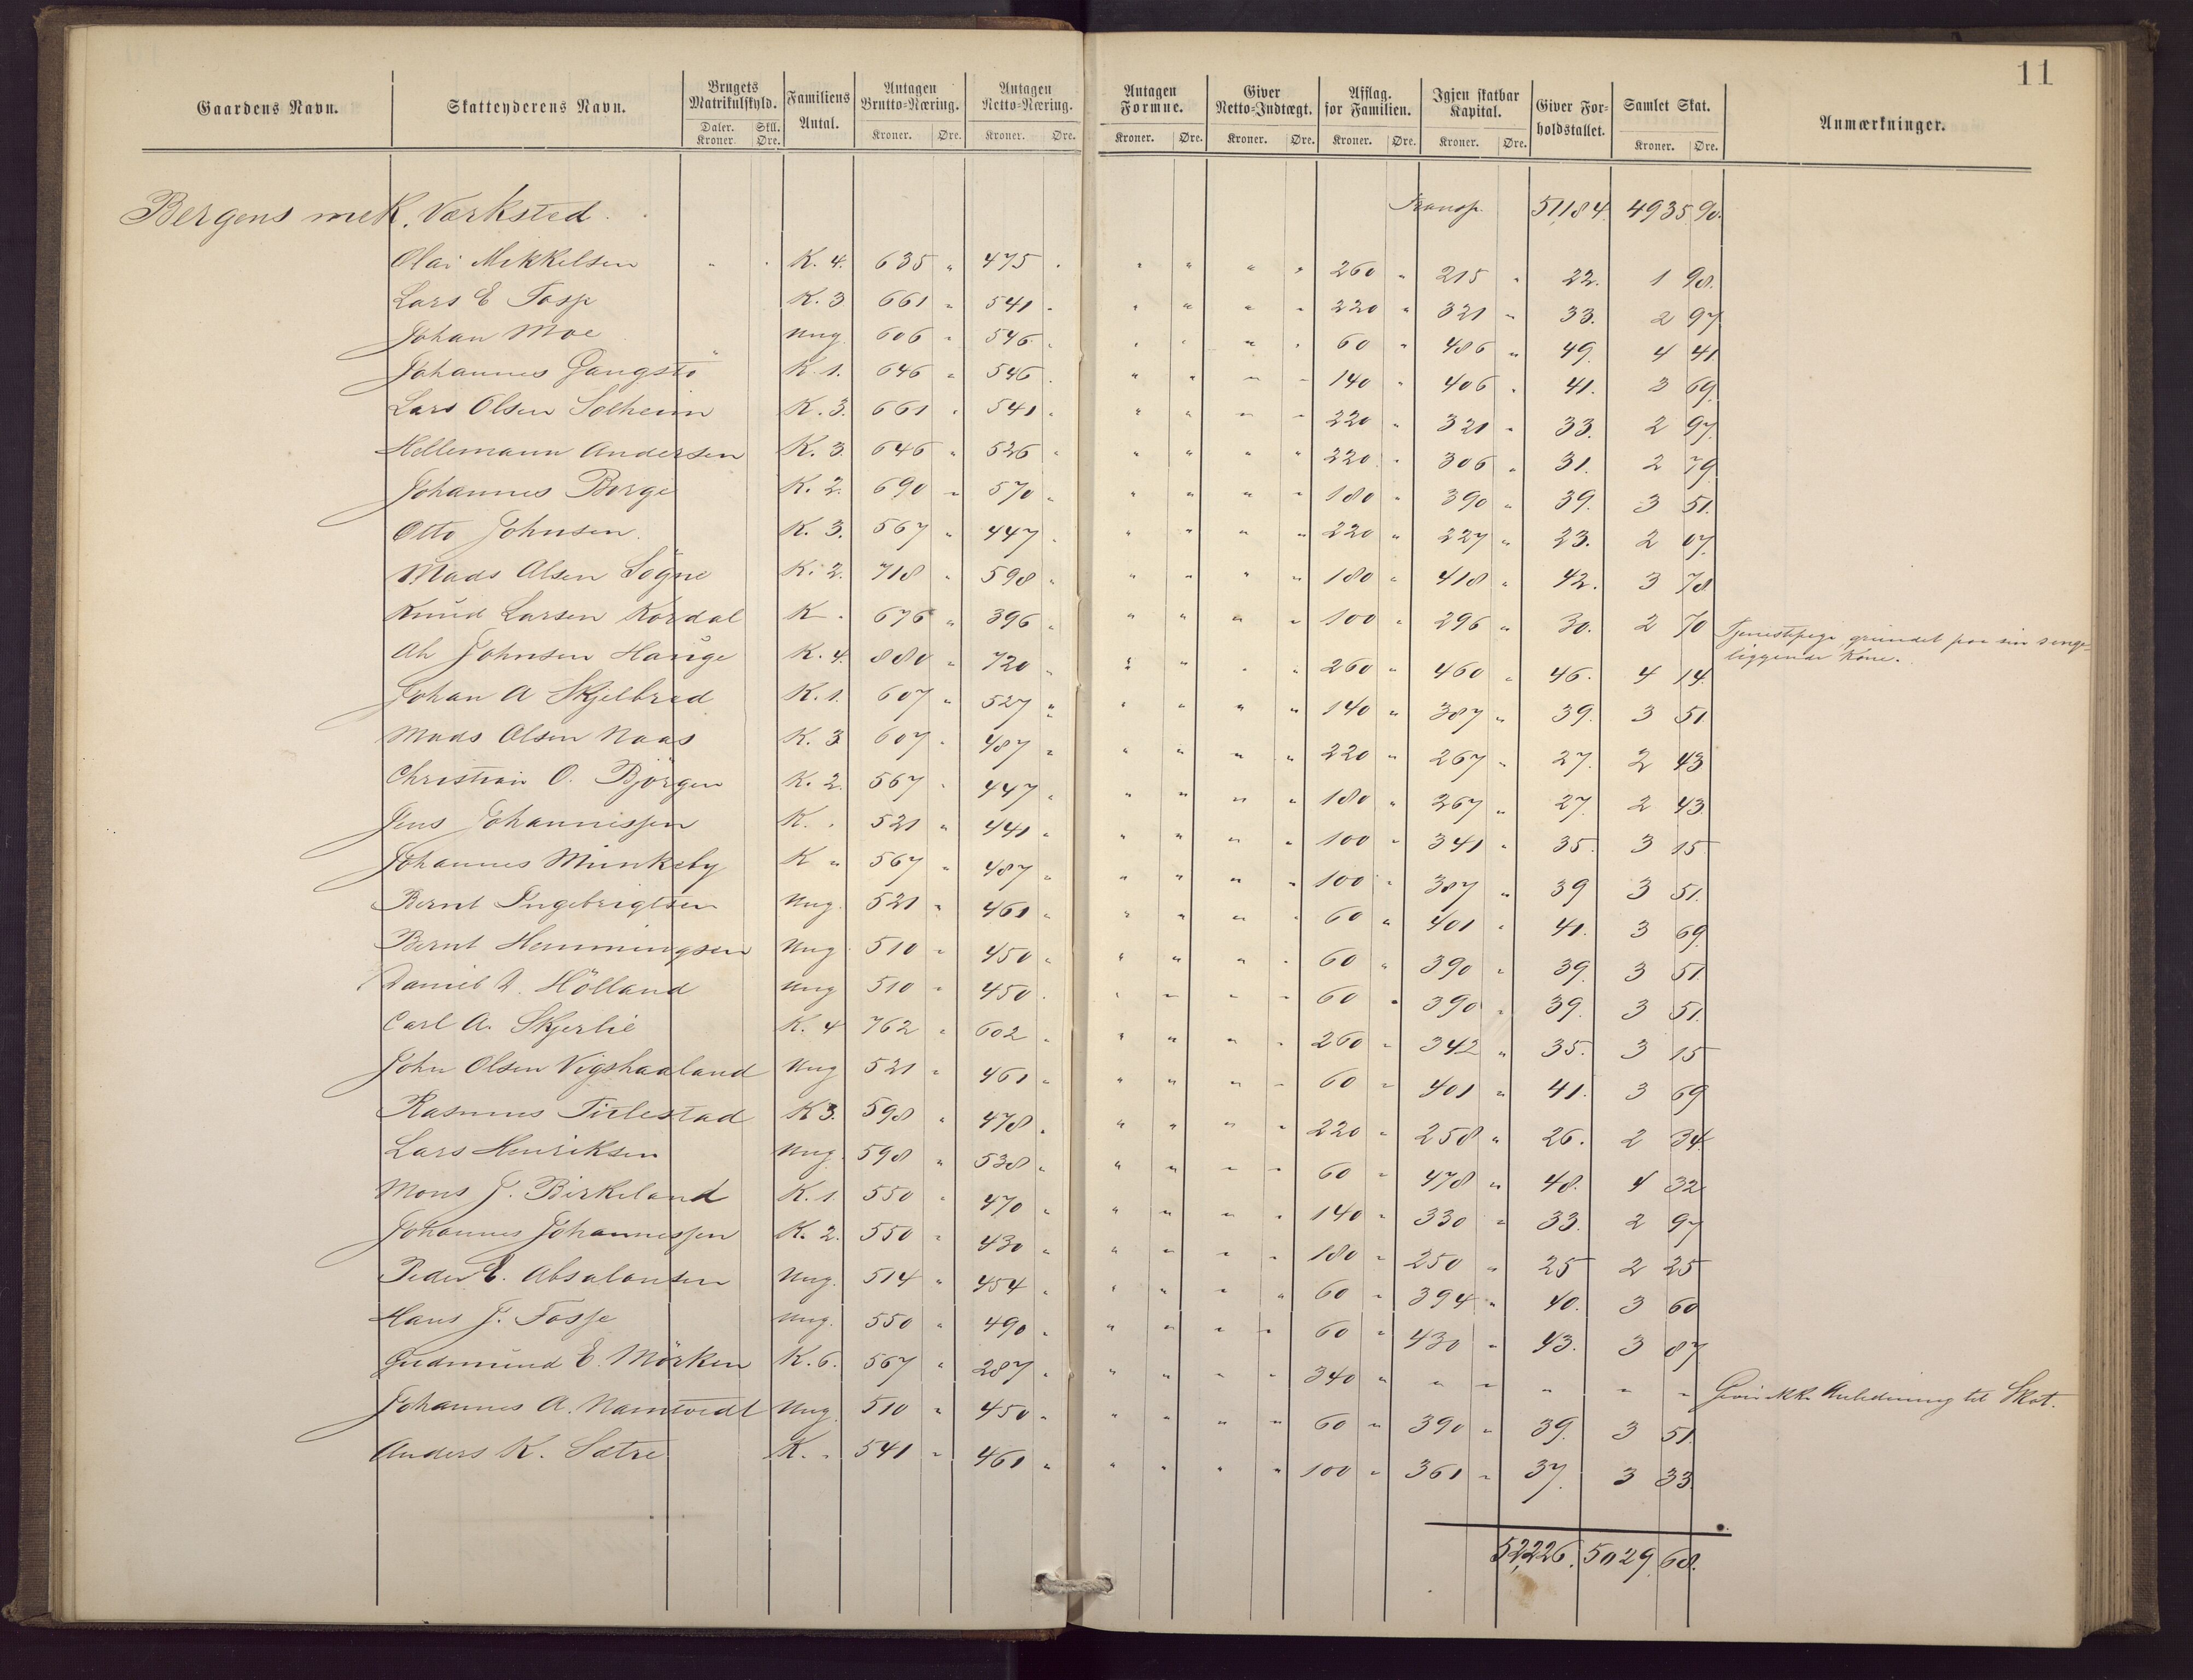 11
Gaardens Navn. Skatteyderens Navn. Brugets Matrikulskyld. Daler. Kroner Skll. Øre. Familiens Antal. Antagen Brutto-Næring. Kroner. Øre. Antagen Netto-Næring. Kroner. Øre. Antagen Formue. Kroner. Øre. Giver Netto-Indtægt. Kroner. Øre. Afslag. for Familien. Kroner. Øre. Igjen skatbar Kapital. Kroner. Øre. Giver Forholdstallet. Samlet Skat. Kroner. Øre. Anmærkninger.
Bergens mek. Værksted. Transp. 51,184. 4935 90.
Olai Mikkelsen " " K. 4. 635 " 475 " " " " " 260 " 215 " 22. 1 98.
Lars E Fosse K. 3 661 " 541 " " " " " 220 " 321 " 33. 2 97
Johan Moe Ung. 606 " 546 " " " " " 60 " 486 " 49. 4 41
Johannes Gangstø K. 1. 646 " 546 " " " " " 140 " 406 " 41. 3 69.
Lars Olsen Solheim K. 3. 661 " 541 " " " " " 220 " 321 " 33. 2 97.
Hellemann Andersen K. 3. 646 " 526 " " " " " 220 " 306 " 31. 2 79
Johannes Borge K. 2. 690 " 570 " " " " " 180 " 390 " 39. 3 51.
Otto Johnsen. K. 3. 567 " 447 " " " " " 220 " 227 " 23. 2 07.
Mads Olsen Søgne K. 2. 718 " 598 " " " " " 180 " 418 " 42. 3 78
Knud Larsen Kordal K " 676 " 396 " " " " " 100 " 296 " 30. 2 70 Tjenestepige, grundet paa sin senge-
liggende Kone.
Ah Johnsen Hauge K. 4. 880 " 720 " " " " " 260 " 460 " 46. 4 14.
Johan A Skjelbred K. 1. 607 " 527 " " " " " 140 " 387 " 39. 3 51
Mads Olsen Naas K. 3 607 " 487 " " " " " 220 " 267 " 27. 2 43
Christian O. Bjørgen K. 2. 567 " 447 " " " " " 180 " 267 " 27. 2 43.
Jens Johannissen K. " 521 " 441 " " " " " 100 " 341 " 35. 3 15.
Johannes Munkeby K " 567 " 487 " " " " " 100 " 387 " 39 3 51.
Bernt Ingebrigtsen Ung. 521 " 461 " " " " " 60 " 401 " 41. 3 69.
Bernt Hemmingsen Ung 510 " 450 " " " " " 60 " 390 " 39. 3 51
Daniel A. Hölland Ung 510 " 450 " " " " " 60 " 390 " 39. 3 51.
Carl A. Skjerlie K. 4 762 " 602 " " " " " 260 " 342 " 35. 3 15
John Olsen Vigshaaland Ung 521 " 461 " " " " " 60 " 401 " 41. 3 69
Rasmus Titlestad K 3. 598 " 478 " " " " " 220 " 258 " 26. 2 34.
Lars Henriksen Ung. 598 " 538 " " " " " 60 " 478 " 48. 4 32
Mons J. Birkeland K. 1. 550 " 470 " " " " " 140 " 330 " 33. 2 97
Johannes Johannessen K. 2. 550 " 430 " " " " " 180 " 250 " 25 2 25
Peder E. Absalonsen Ung. 514 " 454 " " " " " 60 " 394 " 40. 3 60
Hans J. Fosse Ung. 550 " 490 " " " " " 60 " 430 " 43. 3 87
Gudmund E. Mörken K. 6. 567 " 287 " " " " " 340 " " " " " " Giver ikke Anledning til Skat.
Johannes A. Namtvedt Ung. 510 " 450 " " " " " 60 " 390 " 39. 3 51.
Anders K. Sætre K. " 541 " 461 " " " " " 100 " 361 " 37. 3 33.
52,226. 5029 68.